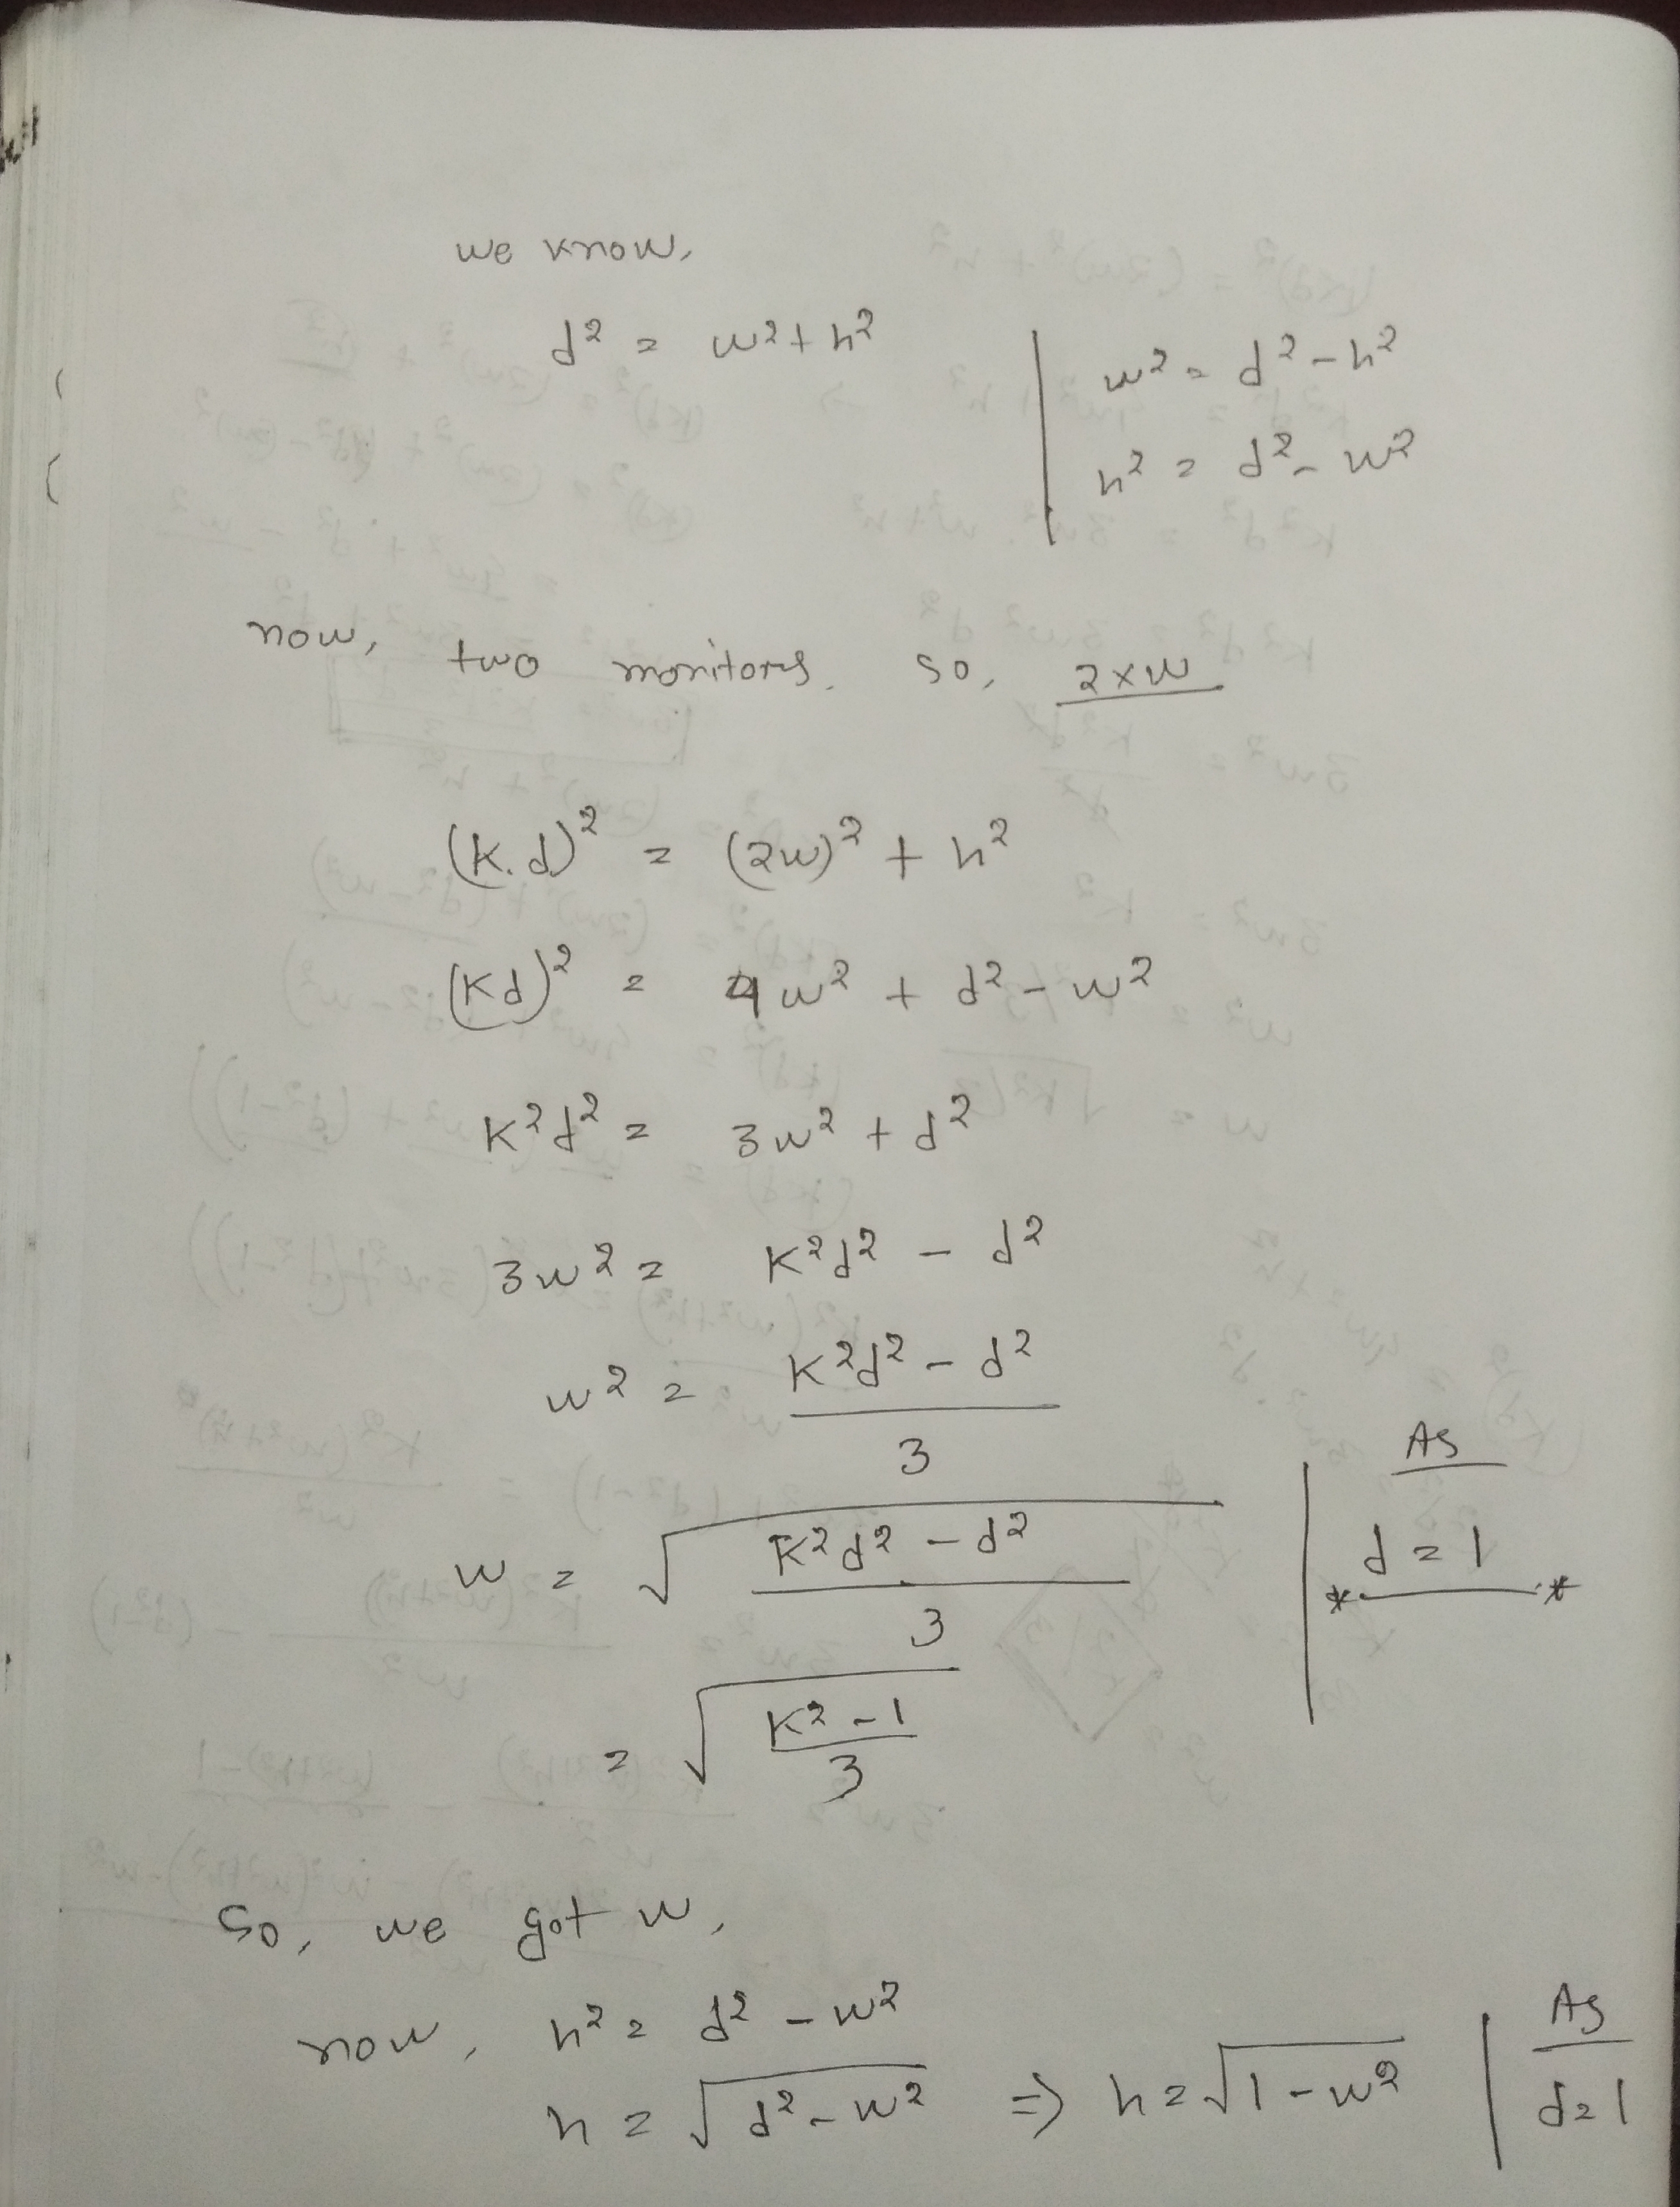 we know,
d² = w² + h²
w² = d² - h²
h² = d² - w²
now, two monitors. so, 2 x w
(K.d)² = (2w)² + h²
(Kd)² = 4w² + d² - w²
K²d² = 3w² + d²
3w² = K²d² - d²
w² = (K²d² - d²) / 3
w = √((K²d² - d²) / 3)
As
* d = 1 *
= √((K² - 1) / 3)
So, we got w,
now, h² = d² - w²
h = √(d² - w²) => h = √(1 - w²)
As
d = 1